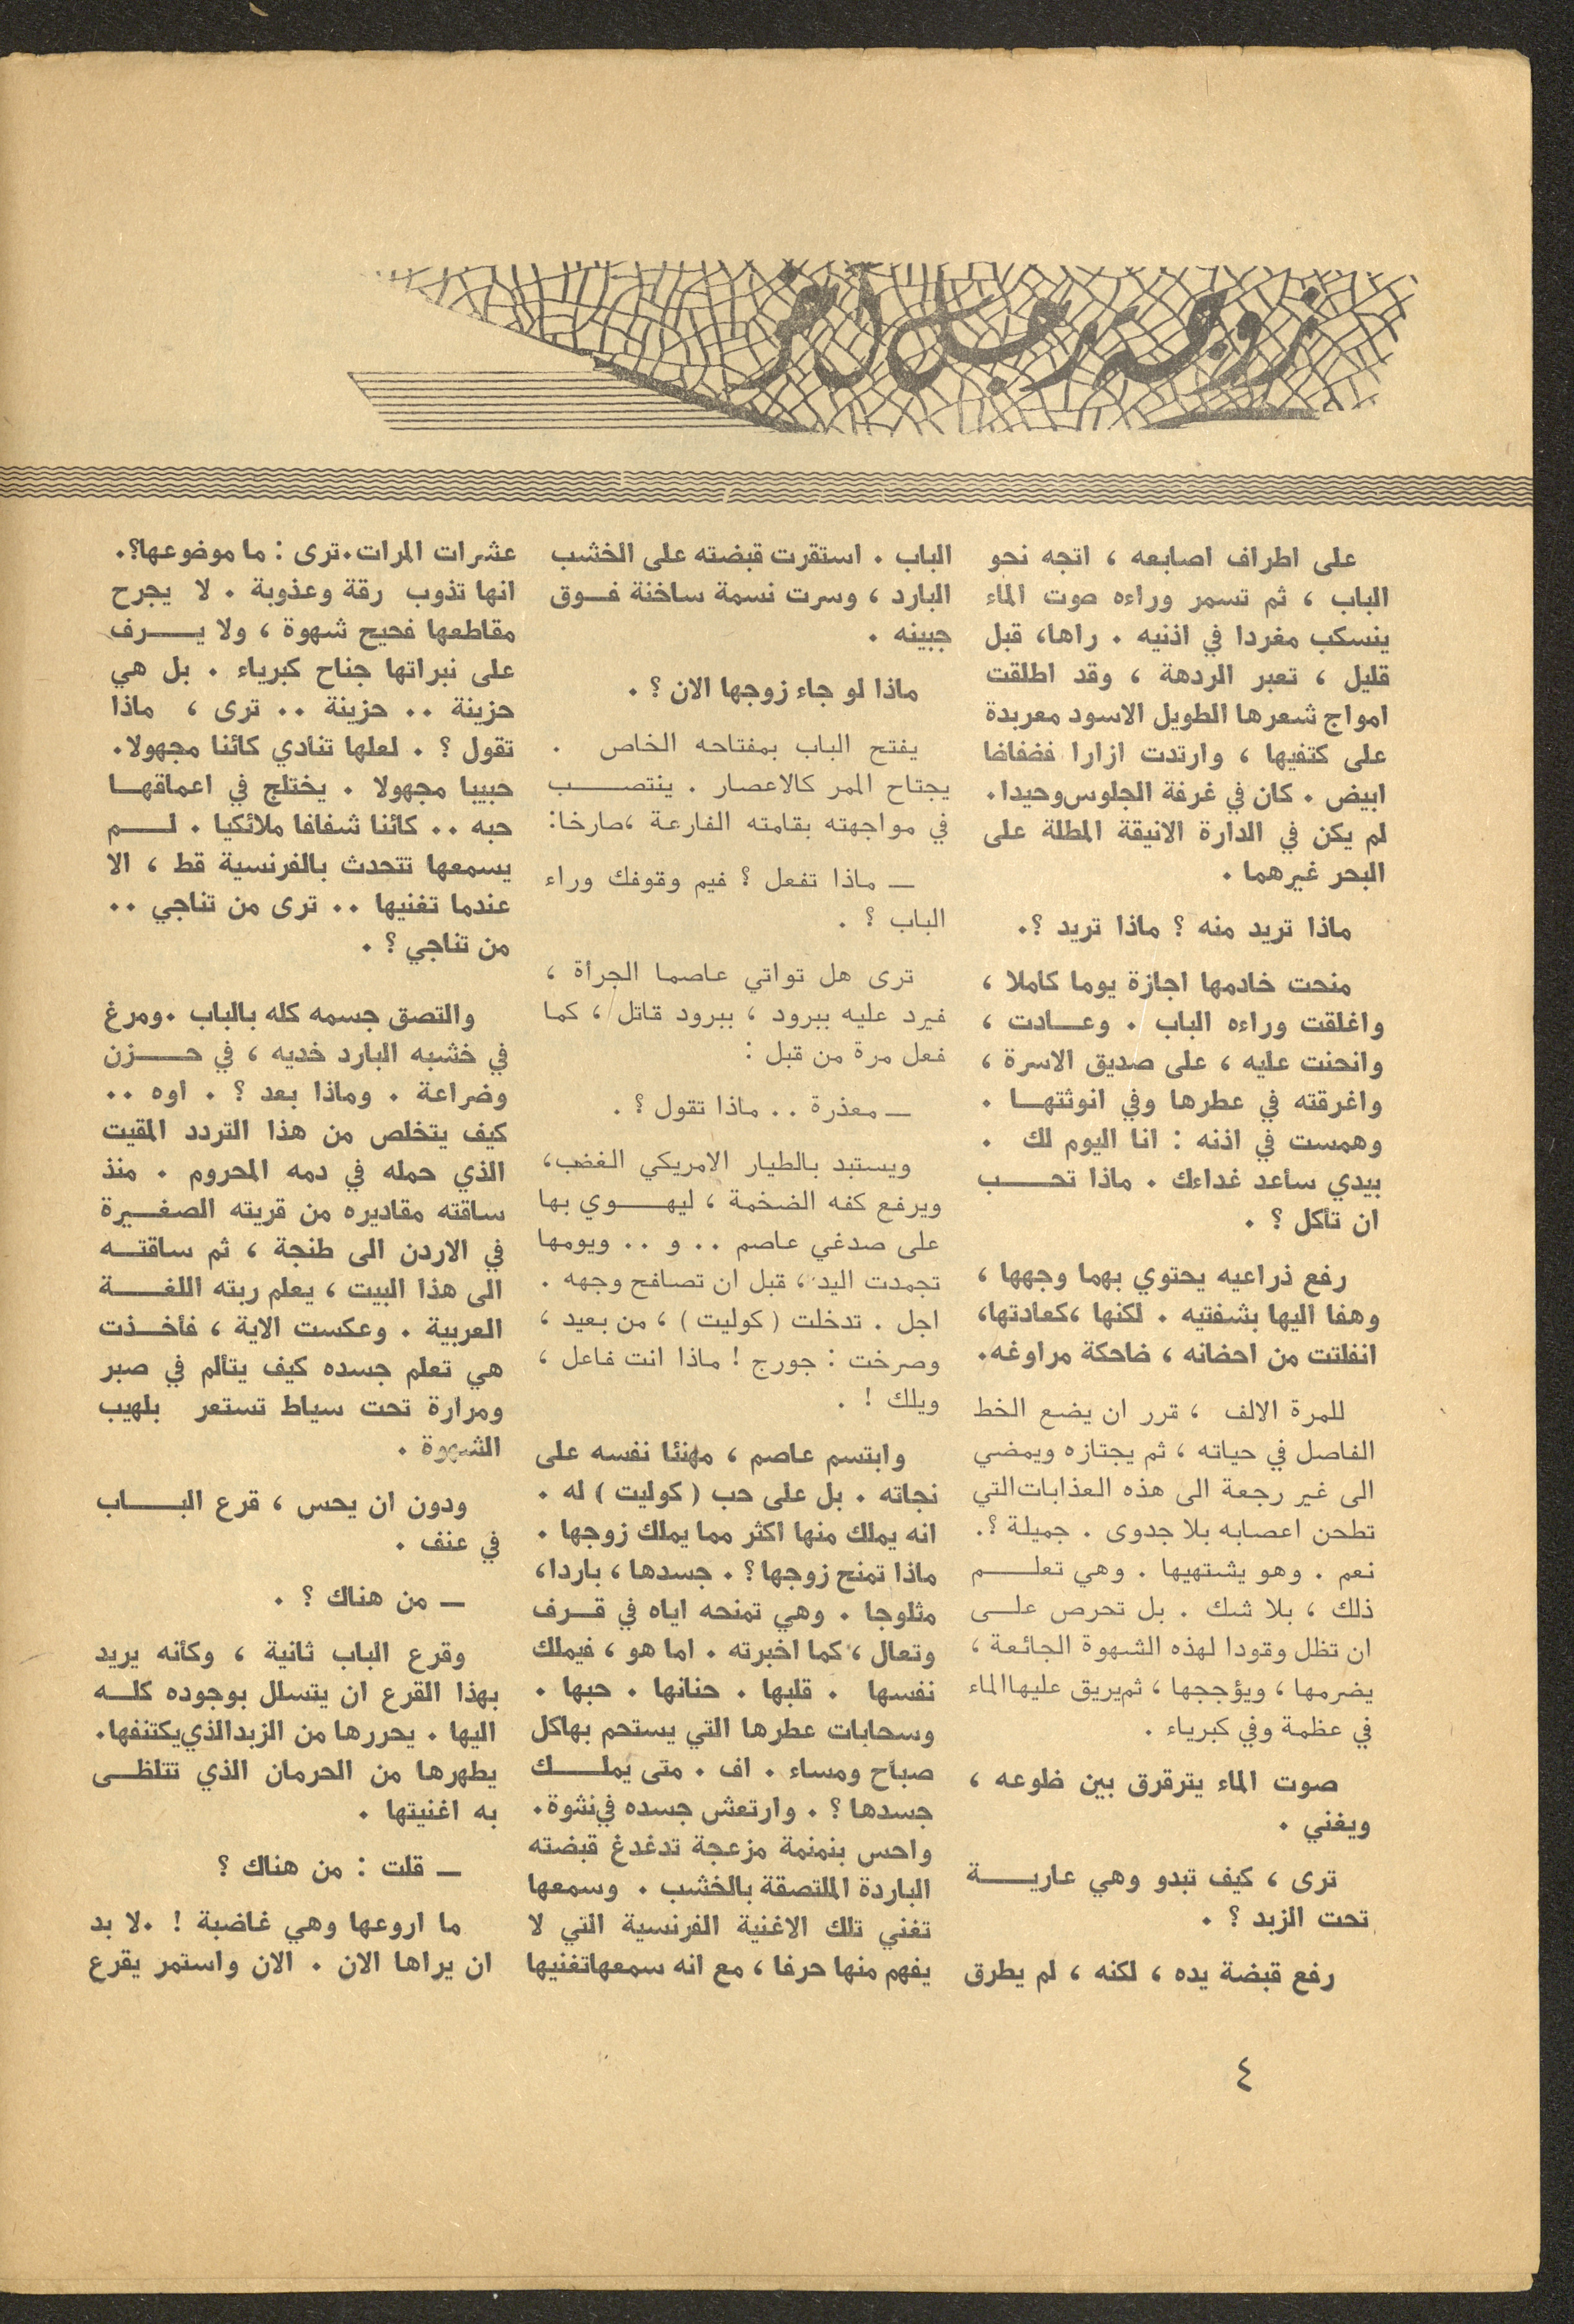 زوجة رجل آخر
على اطراف اصابعه ، اتجه نحو
الباب ، ثم تسمر وراءه صوت الماء
ينسكب مغردا في اذنيه . راها، قبل
قليل ، تعبر الردهة ، وقد اطلقت
امواج شعرها الطويل الاسود معربدة
على كتفيها ، وارتدت ازارا فضفاضا
ابيض . كان في غرفة الجلوس وحيدا.
لم يكن في الدارة الانيقة المطلة على
البحر غيرهما .
ماذا تريد منه ؟ ماذا تريد ؟.
منحت خادمها اجازة يوما كاملا ،
واغلقت وراءه الباب . وعـادت ،
وانحنت عليه ، على صديق الاسرة ،
واغرقته في عطرها وفي انوثتهـا .
وهمست في اذنه : انا اليوم لك .
بيدي سأعد غداءك . ماذا تحـــب
ان تأكل ؟ .
رفع ذراعيه يحتوي بهما وجهها ،
وهفا اليها بشفتيه . لكنها ،كعادتها،
انفلتت من احضانه ، ضاحكة مراوغه.
للمرة الالف ، قرر ان يضع الخط
الفاصل في حياته ، ثم يجتازه ويمضي
الى غير رجعة الى هذه العذابات التي
تطحن اعصابه بلا جدوى . جميلة ؟.
نعم . وهو يشتهيها . وهي تعلـــم
ذلك ، بلا شك . بل تحرص علـى
ان تظل وقودا لهذه الشهوة الجائعة ،
يضرمها ، ويؤججها ، ثم يريق عليها الماء
في عظمة وفي كبرياء .
صوت الماء يترقرق بين ضلوعه ،
ويغني .
ترى ، كيف تبدو وهي عاريـــة
تحت الزبد ؟ .
رفع قبضة يده ، لكنه ، لم يطرق
الباب . استقرت قبضته على الخشب
البارد ، وسرت نسمة ساخنة فــوق
جبينه .
ماذا لو جاء زوجها الان ؟ .
يفتح الباب بمفتاحه الخاص .
يجتاح الممر كالاعصار . ينتصـــب
في مواجهته بقامته الفارعة ،صارخا:
ــ ماذا تفعل ؟ فيم وقوفك وراء
الباب ؟ .
ترى هل تواتي عاصما الجرأة ،
فيرد عليه ببرود ، ببرود قاتل ، كما
فعل مرة من قبل :
ــ معذرة .. ماذا تقول ؟ .
ويستبد بالطيار الامريكي الغضب،
ويرفع كفه الضخمة ، ليهـــوي بها
على صدغي عاصم .. و .. ويومها
تجمدت اليد ، قبل ان تصافح وجهه .
اجل . تدخلت ( كوليت ) ، من بعيد ،
وصرخت : جورج ! ماذا انت فاعل ،
ويلك ! .
وابتسم عاصم ، مهنئا نفسه على
نجاته . بل على حب ( كوليت ) له .
انه يملك منها اكثر مما يملك زوجها .
ماذا تمنح زوجها ؟ . جسدها ، باردا،
مثلوجا . وهي تمنحه اياه في قــرف
وتعال ، كما اخبرته . اما هو ، فيملك
نفسها . قلبها . حنانها . حبها .
وسحابات عطرها التي يستحم بها كل
صباح ومساء . اف . متى يملـــك
جسدها ؟ . وارتعش جسده في نشوة.
واحس بنمنمة مزعجة تدغدغ قبضته
الباردة الملتصقة بالخشب . وسمعها
تغني تلك الاغنية الفرنسية التي لا
يفهم منها حرفا ، مع انه سمعها تغنيها
عشرات المرات.ترى : ما موضوعها؟.
انها تذوب رقة وعذوبة . لا يجرح
مقاطعها فحيح شهوة ، ولا يـــرف
على نبراتها جناح كبرياء . بل هي
حزينة .. حزينة .. ترى ، ماذا
تقول ؟ . لعلها تنادي كائنا مجهولا.
حبيبا مجهولا . يختلج في اعماقهـا
حبه .. كائنا شفافا ملائكيا . لـــم
يسمعها تتحدث بالفرنسية قط ، الا
عندما تغنيها .. ترى من تناجي ..
من تناجي ؟ .
والتصق جسمه كله بالباب .ومرغ
في خشبه البارد خديه ، في حـــزن
وضراعة . وماذا بعد ؟ . اوه ..
كيف يتخلص من هذا التردد المقيت
الذي حمله في دمه المحروم . منذ
ساقته مقاديره من قريته الصغـيرة
في الاردن الى طنجة ، ثم ساقتــه
الى هذا البيت ، يعلم ربته اللغـــة
العربية . وعكست الاية ، فأخـذت
هي تعلم جسده كيف يتألم في صبر
ومرارة تحت سياط تستعر بلهيب
الشهوة .
ودون ان يحس ، قرع البــاب
في عنف .
ــ من هناك ؟ .
وقرع الباب ثانية ، وكأنه يريد
بهذا القرع ان يتسلل بوجوده كلــه
اليها . يحررها من الزبد الذي يكتنفها.
يطهرها من الحرمان الذي تتلظـى
به اغنيتها .
ــ قلت : من هناك ؟
ما اروعها وهي غاضبة ! .لا بد
ان يراها الان . الان واستمر يقرع
٤